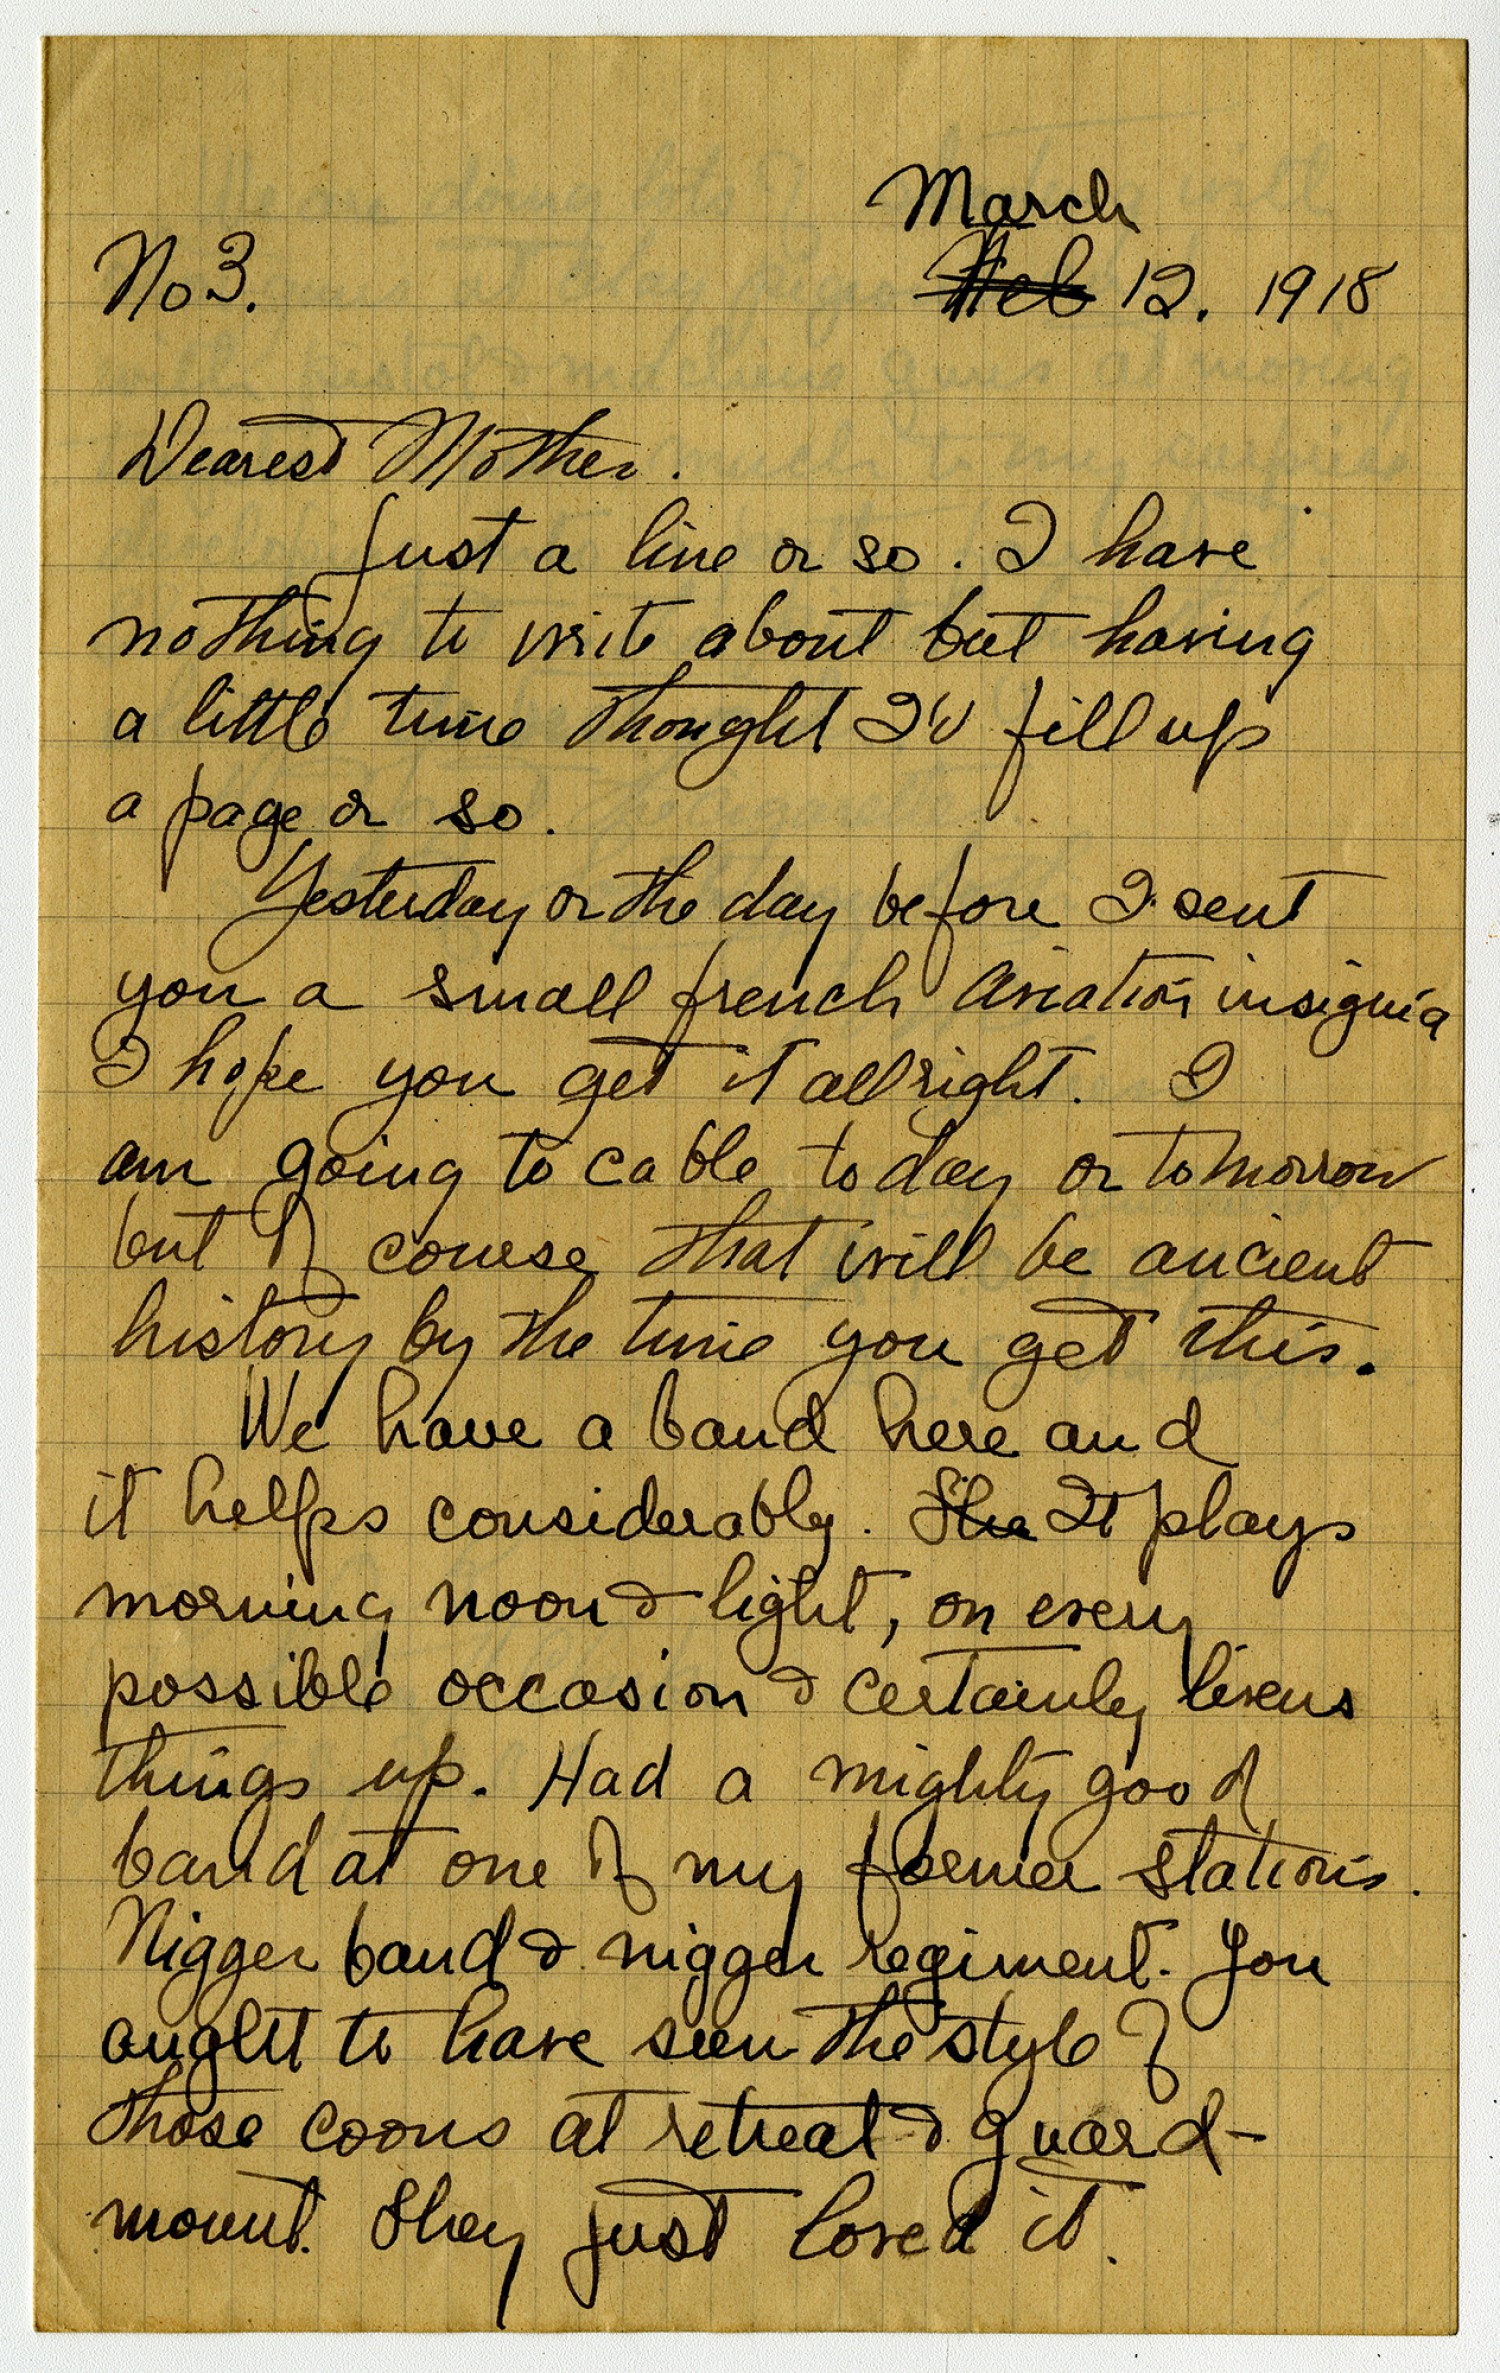 March
No 3. Feb 12. 1918
Dearest Mother.
Just a line or so. I have
nothing to write about but having
a little time thought I'd fill up
a page or so.
Yesterday or the day before I sent
you a small french aviation insignia
I hope you get it allright. I
am going to cable today or tomorrow
but of course that will be ancient
history by the time you get this.
We have a band here and
it helps considerably. The It plays
morning noon & light, on every
possible occasion & certainly livens
things up. Had a mighty good
band at one of my former stations.
Nigger band & nigger regiment. You
aught to have seen the style of
those coons at retreat & guard-
mount. They just loved it.